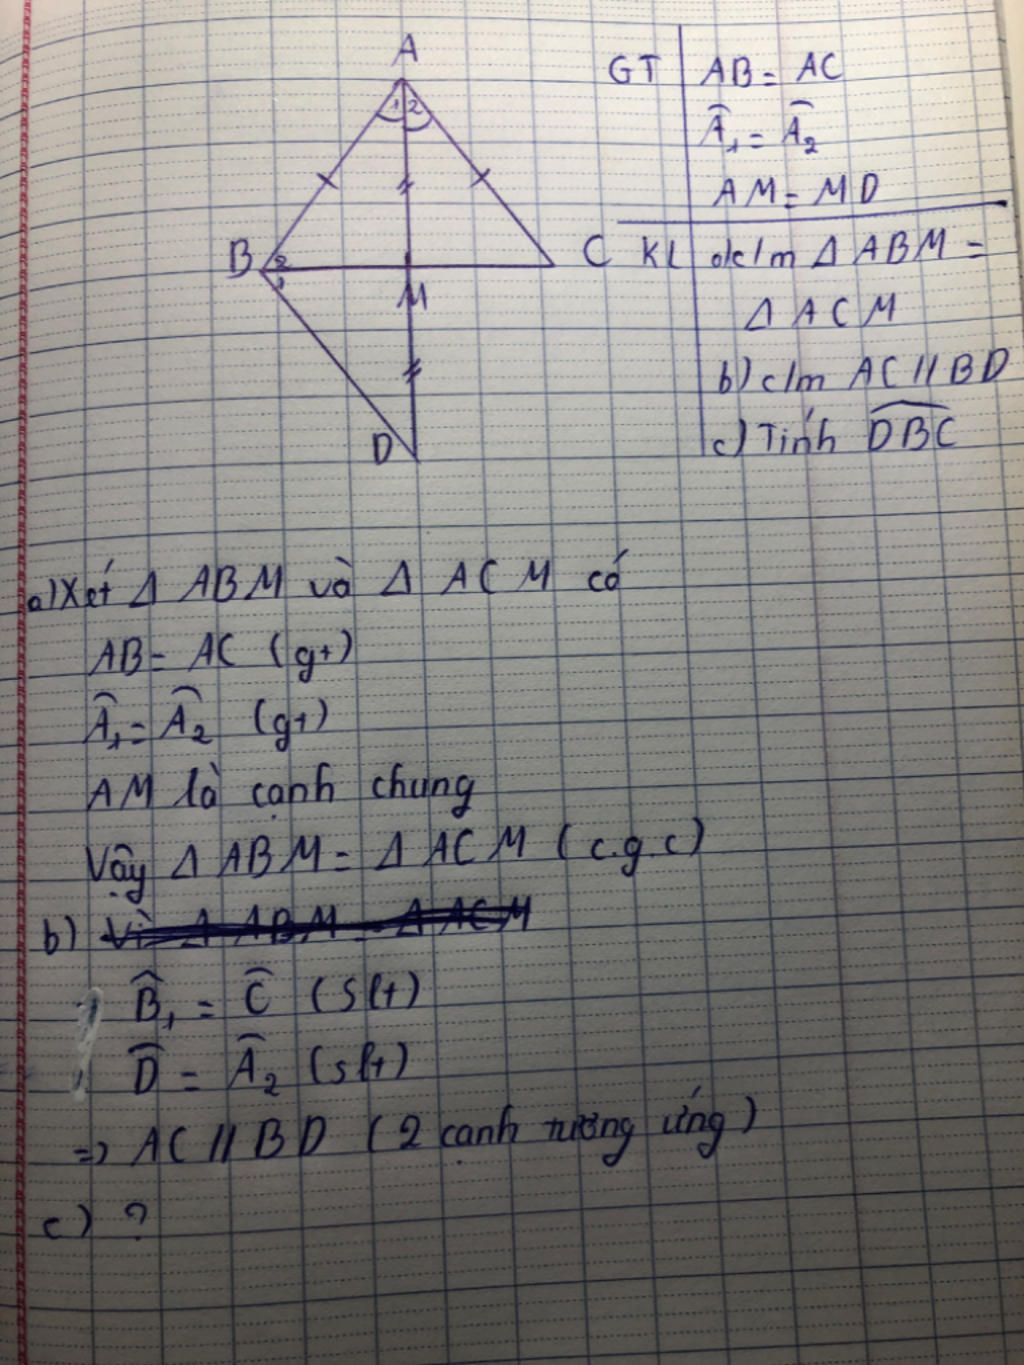 A
1 2
B 2 1
C
M
D
GT AB = AC
Â₁ = Â₂
AM = MD
KL a) c/m Δ ABM =
Δ ACM
b) c/m AC // BD
c) Tính DBC
a) Xét Δ ABM và Δ ACM có
AB = AC (gt)
Â₁ = Â₂ (gt)
AM là cạnh chung
Vậy Δ ABM = Δ ACM (c.g.c)
b) Vì Δ ABM = Δ ACM
B̂₁ = Ĉ (slt)
D̂ = Â₂ (slt)
=> AC // BD (2 cạnh tương ứng)
c) ?